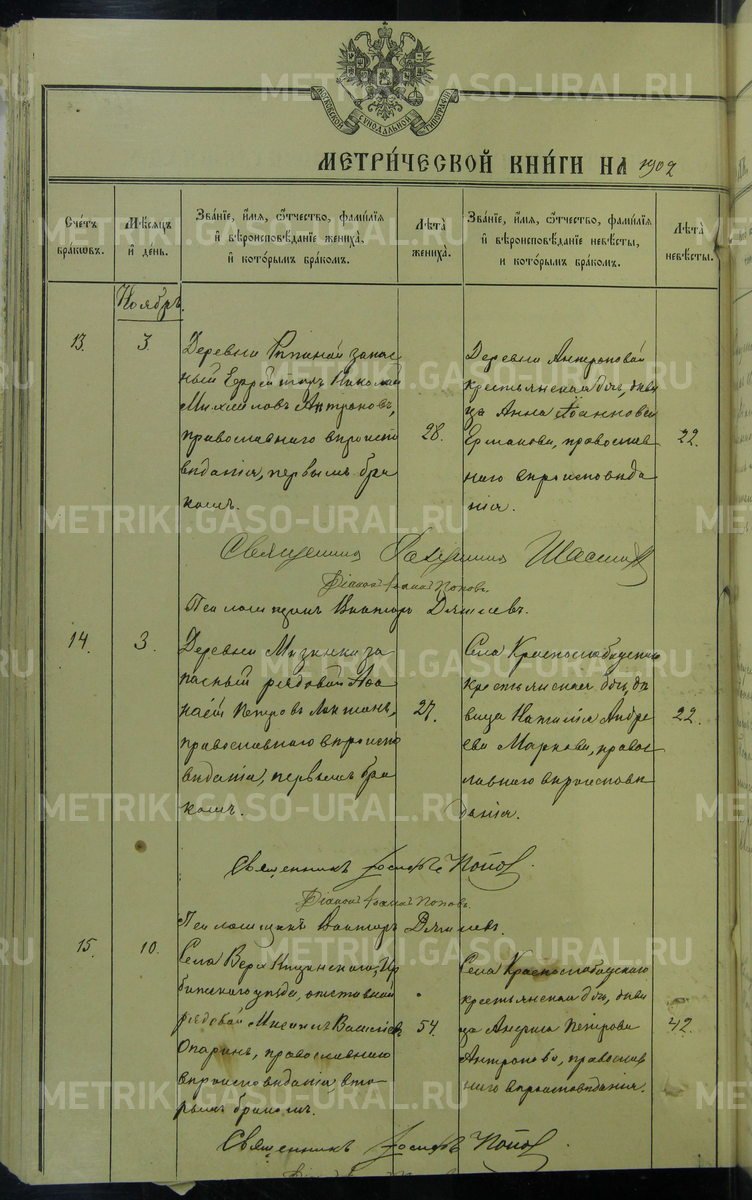 METRIKI.GASO-URAL.RU
МОСКОВСКОЙ СѴНОДАЛЬНОЙ ТИПОГРАФІИ
МЕТРИ́ЧЕСКОЙ КНИ́ГИ НА 1902
Сче́тъ бра́кѡвъ.
Мѣ́сѧцъ и҆ де́нь.
Зва́нїе, и҆́мѧ, ѻ҆́тчество, фами́лїѧ и҆ вѣроисповѣ́данїе жениха̀, и҆ кото́рымъ бра́комъ.
Лѣ́та жениха̀.
Зва́нїе, и҆́мѧ, ѻ҆́тчество, фами́лїѧ и҆ вѣроисповѣ́данїе невѣ́сты, и҆ кото́рымъ бра́комъ.
Лѣ́та невѣ́сты.
Ноябрь.
13.
3.
Деревни запас
ный Ефрейторъ Николай
Михаиловъ Антроповъ,
православнаго вѣроиспо
вѣданія, первымъ бра
комъ.
28.
Деревни Антроповой
крестьянская дочь, дѣви
ца Анна Іоанновна
Ермакова, православ
наго вѣроисповѣда
нія.
22.
Священникъ
Діаконъ Іоаннъ Поповъ.
Псаломщикъ Викторъ
14.
3.
Деревни Мизинки за
пасный рядовой Аѳа
насій Петровъ
православнаго вѣроиспо
вѣданія, первымъ бра
комъ.
27.
Села Краснослободскаго
крестьянская дочь, дѣ
вица Наталія Андре
ева Маркова, правос
лавнаго вѣроисповѣ
данія.
22.
Священникъ Іосифъ Попов.
Діаконъ Іоаннъ Поповъ.
Псаломщикъ Викторъ
15.
10.
Села Верх Ницинскаго, Ир
битскаго уѣзда, отставной
рядовой Максимъ Васильевъ
Опаринъ, православнаго
вѣроисповѣданія, вто
рымъ бракомъ.
54.
Села Краснослободскаго
крестьянская дочь, дѣви
ца Петрова
Антропова, православ
наго вѣроисповѣданія.
42.
Священникъ Іосифъ Попов